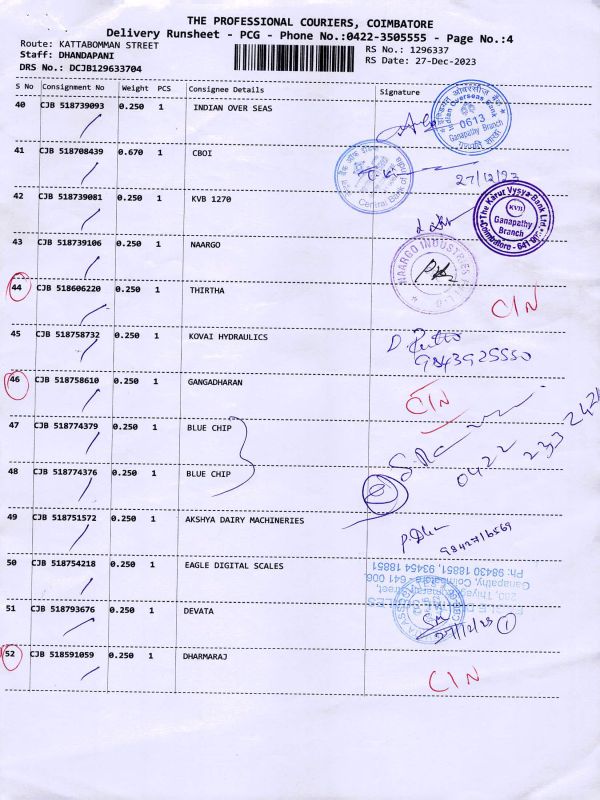 THE PROFESSIONAL COURIERS, COIMBATORE
Delivery Runsheet - PCG - Phone No.:0422-3505555 - Page No.:4
Route: KATTABOMMAN STREET
Staff: DHANDAPANI
DRS No.: DCJB129633704
RS No.: 1296337
RS Date: 27-Dec-2023
S No Consignment No Weight PCS Consignee Details Signature
40 CJB 518739093 0.250 1 INDIAN OVER SEAS
Indian Overseas Bank
0613
Ganapathy Branch
41 CJB 518708439 0.670 1 CBOI
Central Bank of
27/12/23
42 CJB 518739081 0.250 1 KVB 1270
The Karur Vysya Bank Ltd
KVB
Ganapathy
Branch
Coimbatore - 641
43 CJB 518739106 0.250 1 NAARGO
NAARGO INDUSTRIES
44 CJB 518606220 0.250 1 THIRTHA
CIN
45 CJB 518758732 0.250 1 KOVAI HYDRAULICS
9843925550
46 CJB 518758610 0.250 1 GANGADHARAN
CIN
47 CJB 518774379 0.250 1 BLUE CHIP
48 CJB 518774376 0.250 1 BLUE CHIP
0422
49 CJB 518751572 0.250 1 AKSHYA DAIRY MACHINERIES
50 CJB 518754218 0.250 1 EAGLE DIGITAL SCALES
Ganapathy, Coimbatore - 641 006.
Ph: 98430 18851, 93454 18851
51 CJB 518793676 0.250 1 DEVATA
27/12/23 1
52 CJB 518591059 0.250 1 DHARMARAJ
CIN